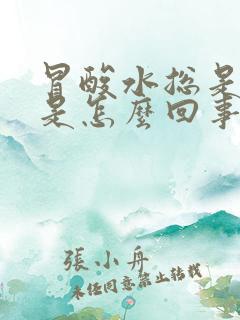 冒酸水总是
是怎麼回事
張小舟
未任同意禁止转载